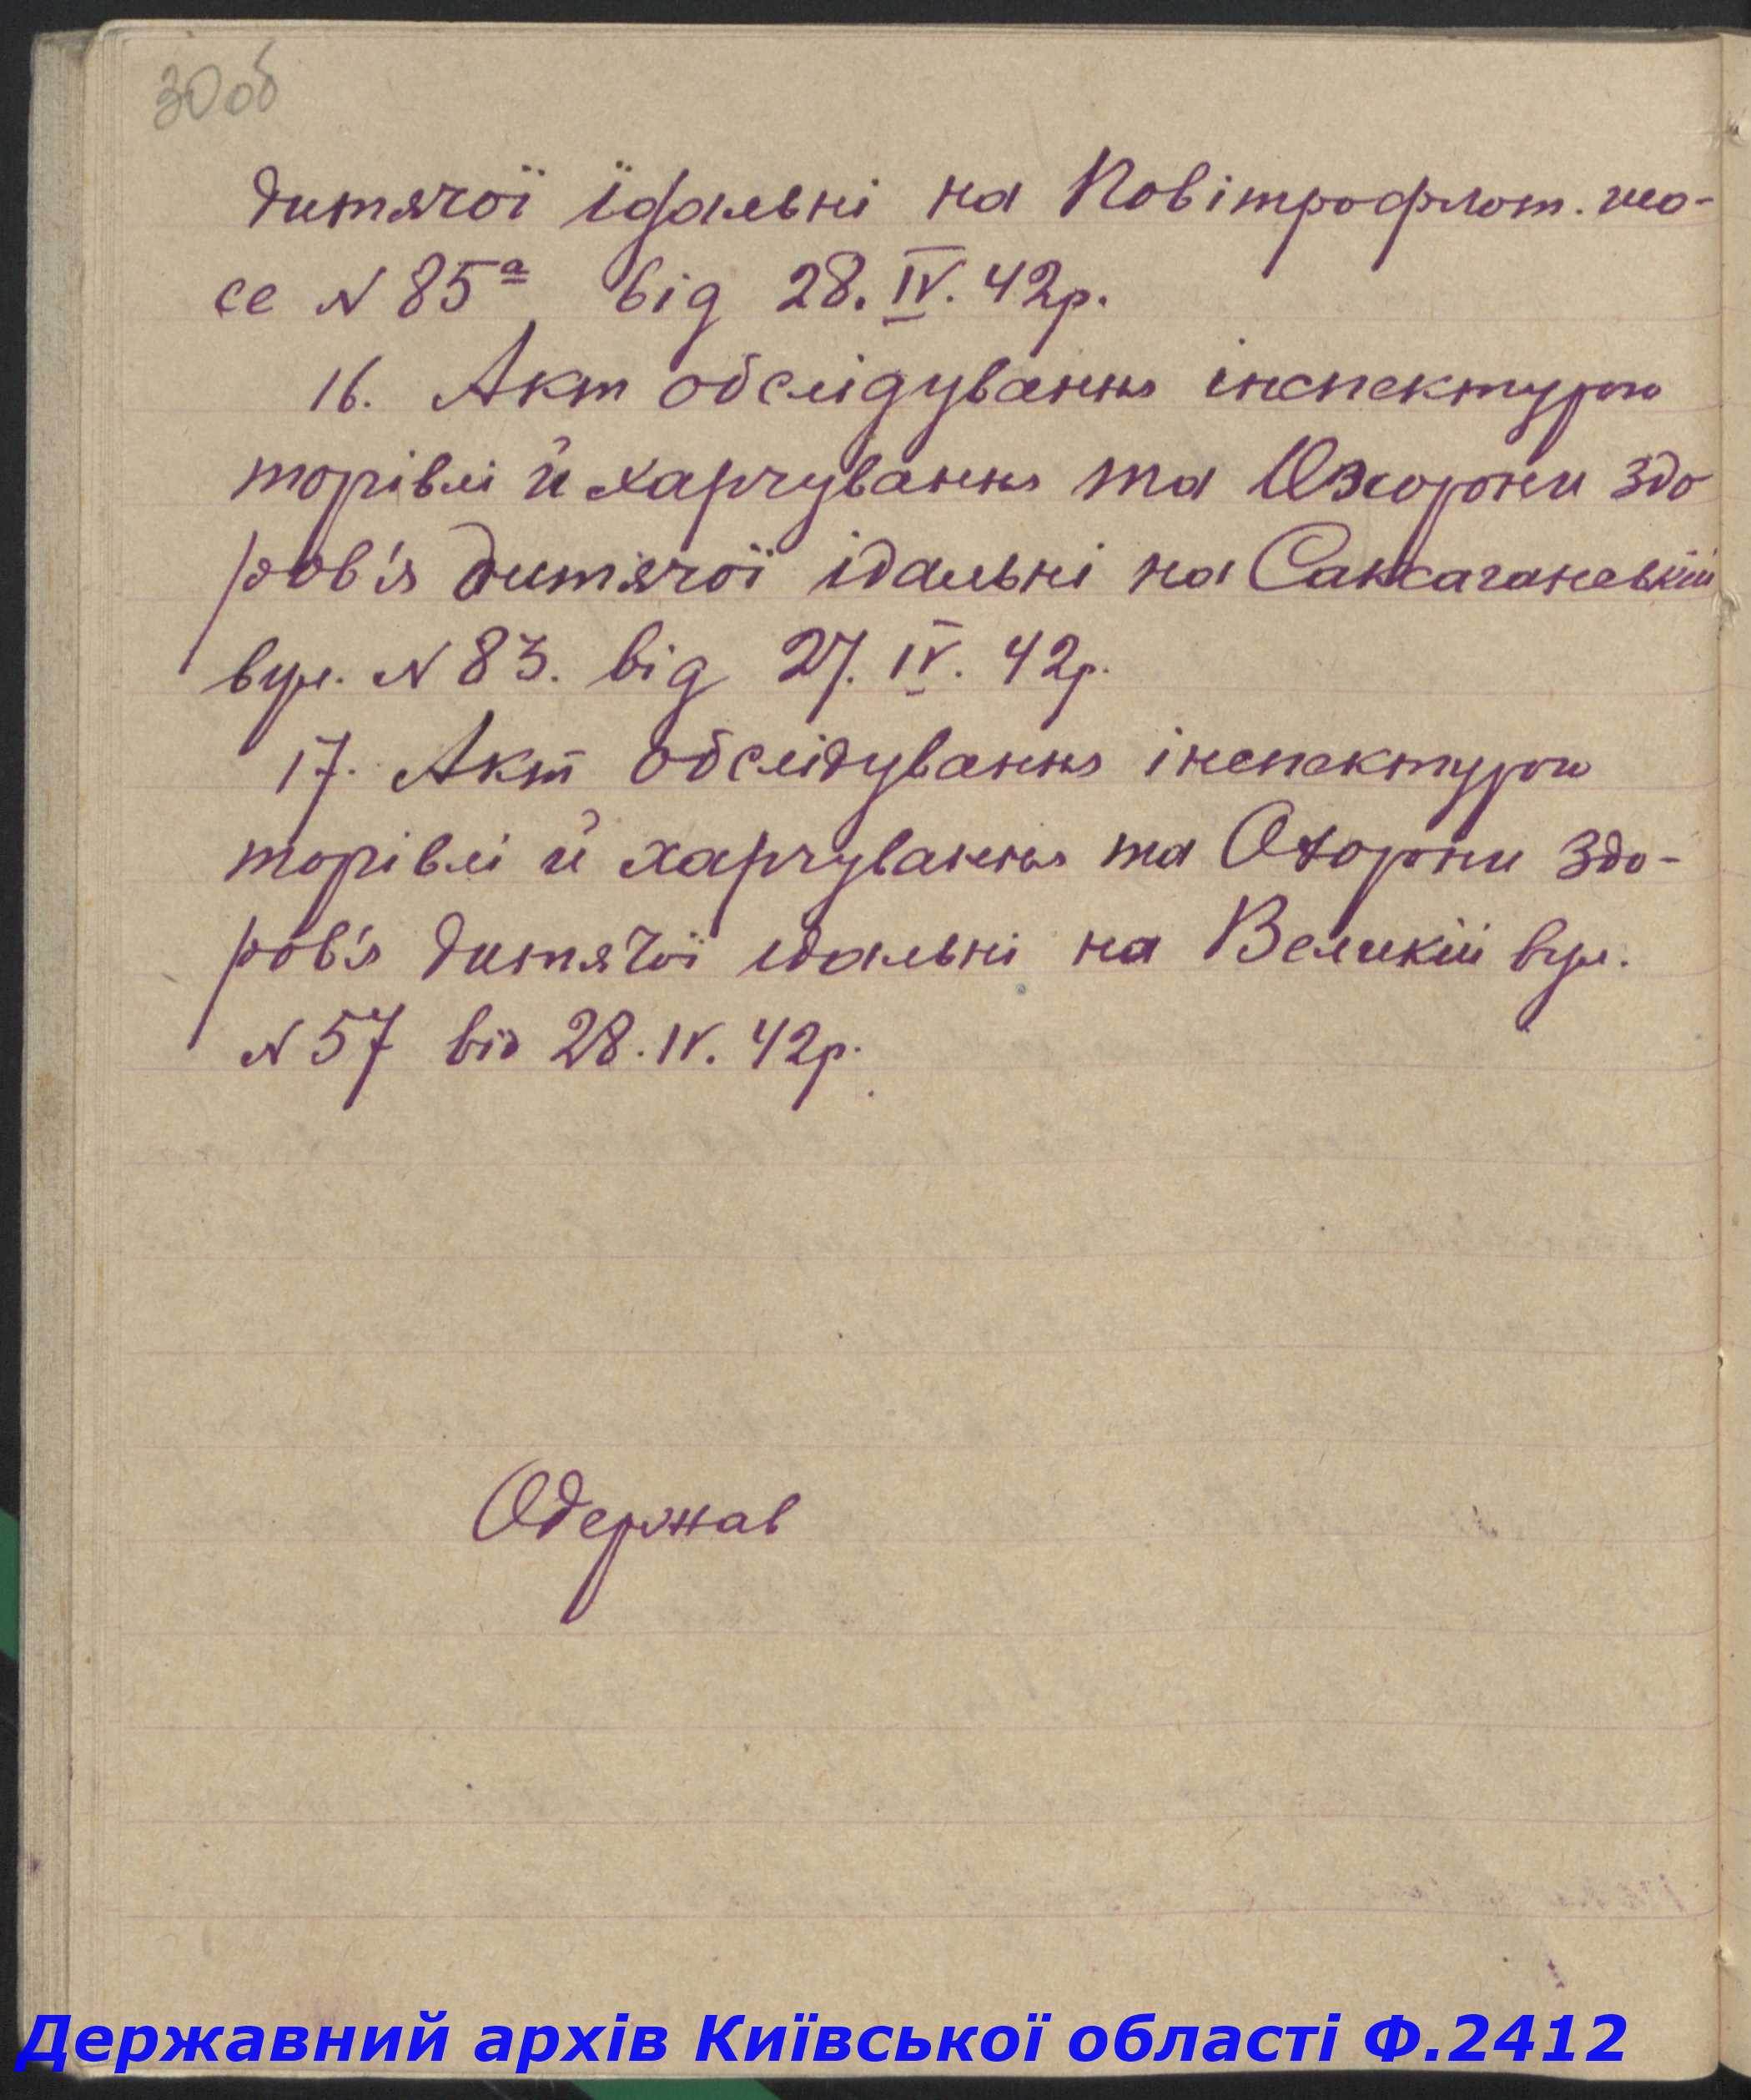 30об
дитячої їдальні на Повітрофлот. шо-
се N 85а від 28.IV.42р.
16. Акт обслідування інспектурою
торівлі й харчування та Охорони Здо
ров'я дитячої їдальні на Саксаганській
вул. N 83. від 27.IV.42р.
17. Акт обслідування інспектурою
торівлі й харчування та Охорони Здо-
ров'я дитячої їдальні на Великій вул.
N 57 від 28.IV.42р.
Одержав
Державний архів Київської області Ф.2412